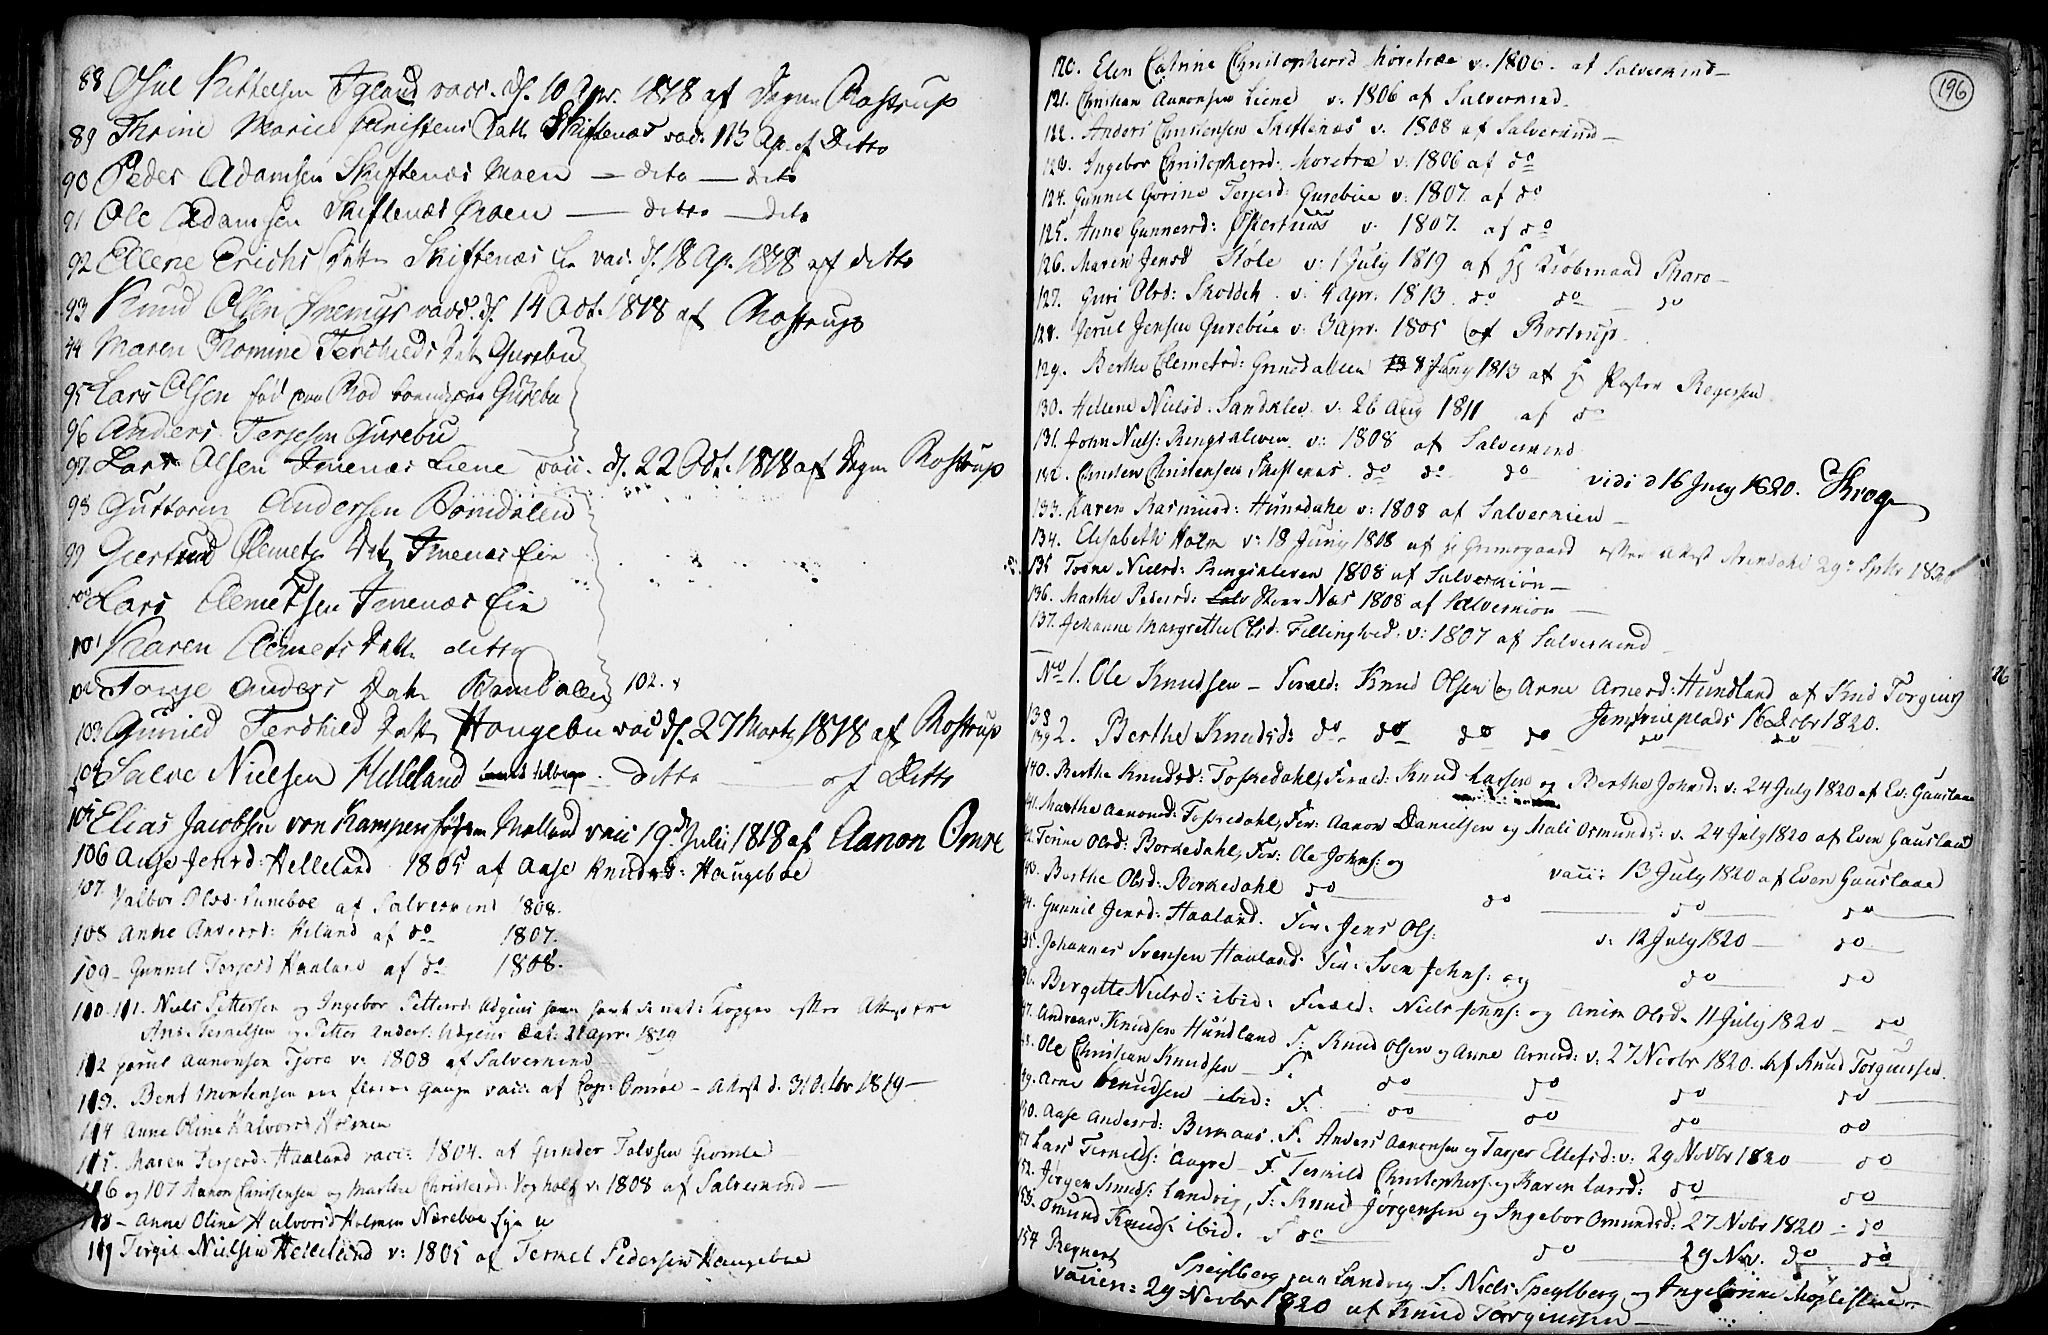 88 Osul Kittelsen Igland vacc. d. 10 Apr. 1818 af Degnen Rostrup
89 Thrine Marie Christens Datt. Skiftenæs vac. 1813 Ap. af Ditto
90 Peder Adamsen Skiftenæs Moen — dito — dito
91 Ole Adamsen Skiftenæs Moen — ditto — dito
92 Ellene Erichs Datter Skiftenæs Eie vac. d. 18 Ap. 1818 af ditto
93 Knud Olsen vacc. d. 14 Oct. 1818 af Rostrup
94 Maren Thomine Terchilds Dat. Gurebu
95 Lars Olsen fød paa Rod Gurebu
96 Anders Terjesen Gurebu
97 Lars Olsen Imenæs Liene vacc. d. 22 Oct. 1818 af Degnen Rostrup
98 Guttorm Andersen Bomdalen
99 Giertrud Clemets Dat. Imenæs Eie
100 Lars Clemetsen Imenæs Eie
101 Maren Clemets Datt. ditto
102 Tonje Anders Dat. Bomdalen 102.
103 Gunild Terchild Datt. Haugebu vac. d. 27 Marts 1818 af Rostrup
104 Salve Nielsen Helleland ditto — af Ditto
105 Elias Jacobsen von Kampen Molland vacc. 19 d. Julii 1818 af Aanon Omre
106 Aase Jensd: Helleland 1805 af Aase Knudsd: Haugeboe
107. Valbor Olsd: af Salvesmind 1808.
108 Anne Andersd: Heland af do 1807.
109 – Gunnil Terjesd Haaland af do 1808.
110. 111. Niels Pettersen og Ingebor Pettersd: Adgius have havt de nat: Kopper efter Attest fra
Ans Ternelsen og Petter Anders: Adgius Dat: 21 Apr. 1819
112 Jorul Aanonsen Tjore v: 1808 af Salvesmind
113. Bent Mortensen flere gange vacc. af Omröe – Attest d. 31 Octbr 1819 –
114 Anne Oline Halvorsd Holmen
115. Maren Terjesd: Haaland vacc: 1804. af Gunder Talosen Gromle
116 og 107 Aanon Christensen og Marthe Christensd: v: 1808 af Salvesmind —
118 – Anne Oline Halvorsd Holmen Næreboe
119 Torgie Nielsen Helleland v: 1805 af Ternel Pedersen Haugeboe
196
120. Elen Catrine Christophersd Moretræe v. 1806. af Salvesmind —
121. Christian Aanonsen Liene v: 1806 af Salvesmind.
122. Anders Christensen Skiftenæs v: 1808 af Salvesmind —
123. Ingebor Christophersd: Moretræ v: 1806 af do
124. Gunnel Gorine Terjesd: Gurebue v: 1807. af do
125. Anne Gunnersd: v: 1807. af do
126. Maren Jensd Støle v: 1 July 1819 af Hr Kiöbmand Pharo —
127. Guri Olsd: v: 4 Apr. 1813. do do do
128. Jerul Jensen Gurebue v: 3 Apr. 1805 af Rostrup.
129. Berthe Clemetsd: 8 Juny 1813 af Hr Pastor Regersen
130. Hellene Nielsd: Sandklev. v: 26 Aug 1811 af do
131. John Niels: v: 1808 af Salvesmind
132. Christen Christensen Skiftenæs. do do do vidi d 16 July 1820. Krog
133. Karen Rasmusd: v: 1808 af Salvesmien —
134. Elisabeth Holm v: 18 Juny 1808 af Hr Grimsgaard efter Attest Arendahl 29: Sptbr
135 Tonne Nielsd: 1808 af Salvesmion —
136. Marthe Pedersd: Næs 1808 af Salvesmion —
137. Johanne Margrethe Olsd: Fellingtved: v: 1807 af Salvesmind —
No 1. Ole Knudsen – Foræld: Knud Olsen og Anne Arnesd: Hundland af Knud Torgius
138 Decbr 1820.
139 2. Berthe Knudsd: do do do do do do
140. Berthe Knudsd: Toskedahl, Foræld: Knud Larsen og Berthe Johnsd: v: 24 July 1820 af Ev: Gauslaae
41. Marthe Aanonsd: Toskedahl, For: Aanon Danielsen og Mali Osmunds: v. 24 July 1820 af Even Gauslaae
42. Torine Olsd: Borkedahl, For: Ole Johns: og vacc: 13 July 1820 af Even Gauslaae
43. Berthe Olsd: Borkedahl do — do — do — do
44. Gunnil Jensd: Haaland. For: Jens Ols: v: 12 July 1820 — do —
45. Johannes Svensen Haaland. For: Sven Johns: og do do
46. Bergitte Nielsd: ibid: Foræld: Niels Johns: og Anne Olsd. 11 July 1820 — do
47. Andreas Knudsen Hundland F: Knud Olsen og Anne Arnesd: v: 27 Novbr 1820. af Knud Torgiussen.
48. Ole Christian Knudsen — F. do do do do
49. Arne Knudsen — ibid: F. do do do do
150. Aase Andersd: F. Anders Aanonsen og Tarjer Ellefsd: v: 29 Novbr 1820 — do
151 Lars Ternilds: Aagre — F. Ternild Christophers: og Karen Larsd: do do
152. Jörgen Knuds: Landvig, F: Knud Jörgensen og Ingebor Omundsd: 27 Novbr 1820 — do
153. Omund Knuds: ibid. F do do 29 Nov. do do
154 Regnert Speylberg paa Landvig F. Niels Speylberg og
vaccen: 29 Novbr 1820 af Knud Torgiussen —